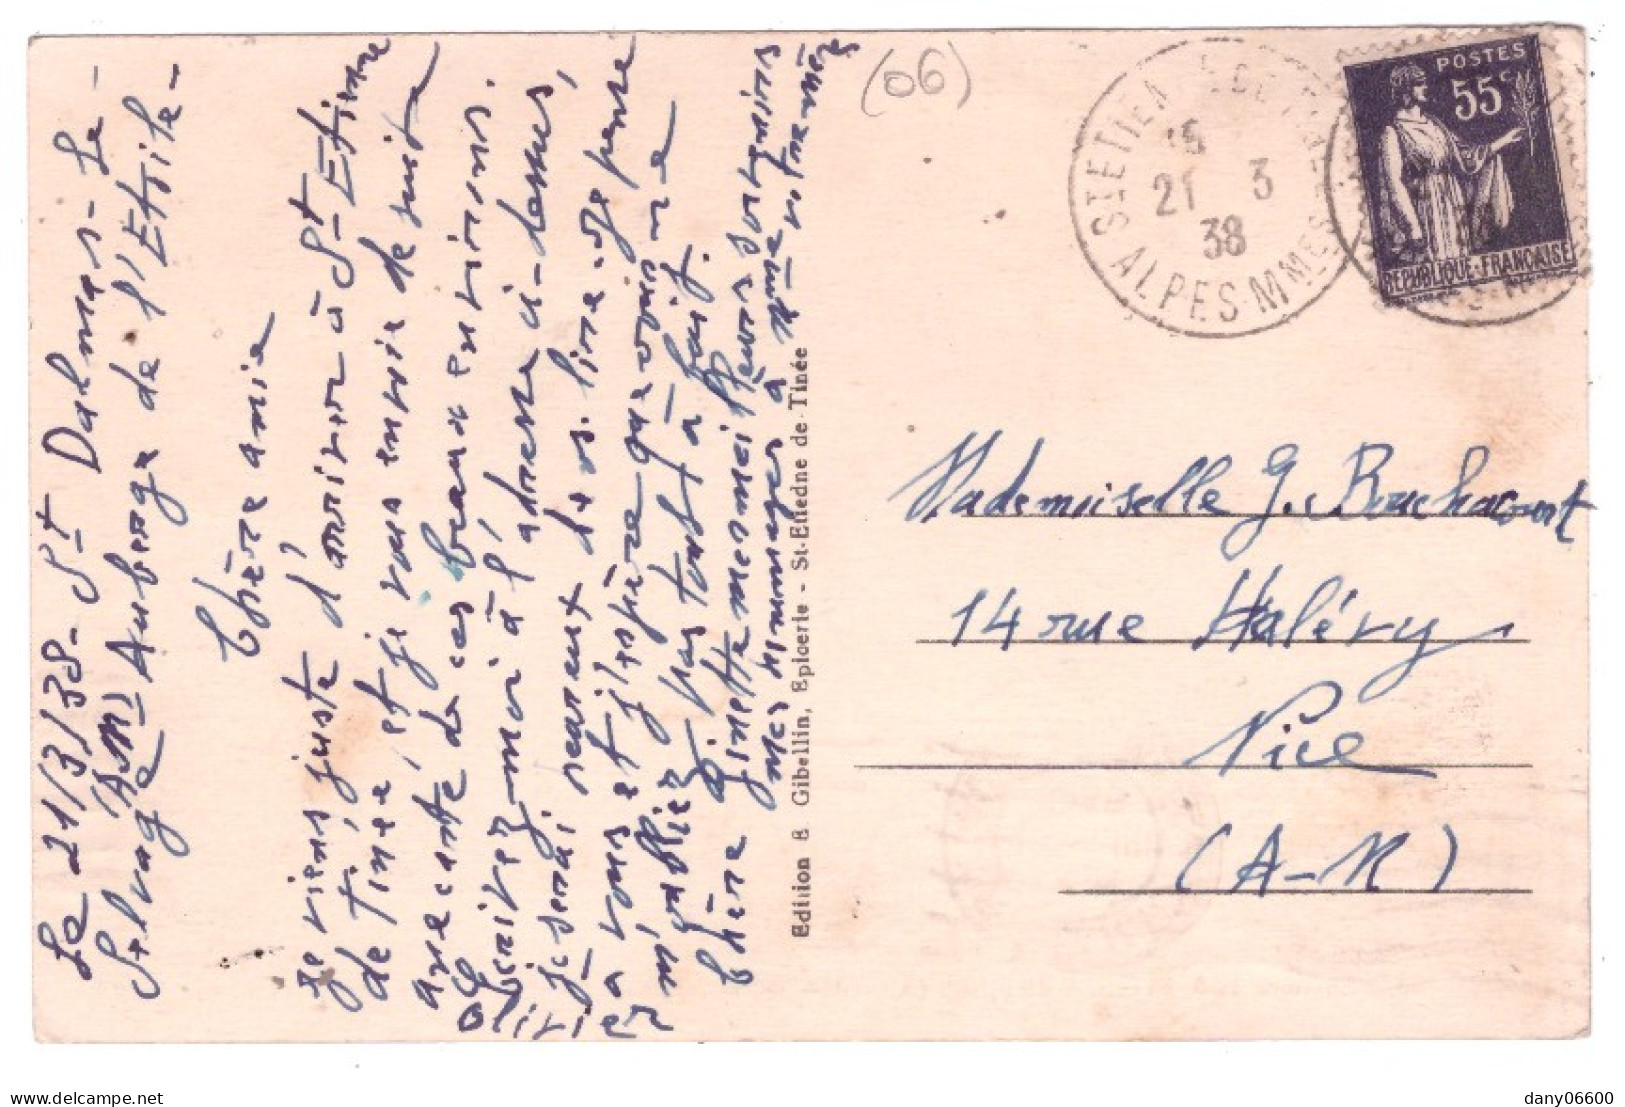 Le 21/3/38- St Dalmas-Le-
Selvage (A.M) Auberge de l'Etoile-
Chère amie
Je viens juste d'arriver à St-Etienne
de Tinée, et je vous envie de suite
une carte de ces beaux environs.
Ecrivez moi à l'adresse ci-dessus,
je serai heureux de vs. lire. Je pense
à vous et j'espère que vous ne
m'oubliez pas tout à fait.
Chère Ginette
mes hommages à
Olivier
Edition B Gibellin, Epicerie - St-Etiedne de-Tinée
(06)
ST ETIENNE DE TINÉE
15
21 3
38
ALPES-MMES
POSTES
55c
REPUBLIQUE-FRANÇAISE
Mademoiselle G. Bruchacourt
14 rue Halévy
Nice
(A-M)
dany06600